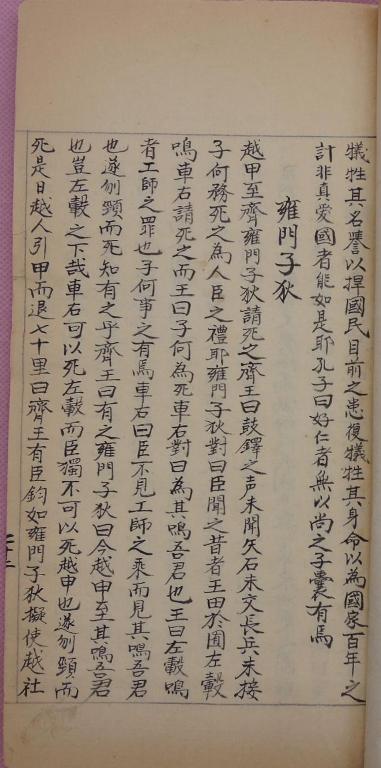 犠牲其名譽以捍國民目前之患復犠牲其身命以為國家百年之
計非真愛國者能如是耶孔子曰好仁者無以尚之子囊有焉
雍門子狄
越甲至齊雍門子狄請死之齊王曰鼓鐸之声未聞矢石未交長兵未接
子何務死之為人臣之禮耶雍門子狄對曰臣聞之昔者王田於囿左轂
鳴車右請死之而王曰子何為死車右對曰為其鳴吾君也王曰左轂鳴
者工師之罪也子何事之有焉車右曰臣不見工師之乘而見其鳴吾君
也遂刎頸而死知有之乎齊王曰有之雍門子狄曰今越甲至其鳴吾君
也豈左轂之下哉車右可以死左轂而臣獨不可以死越甲也遂刎頸而
死是日越人引甲而退七十里曰齊王有臣鈞如雍門子狄擬使越社
二十二